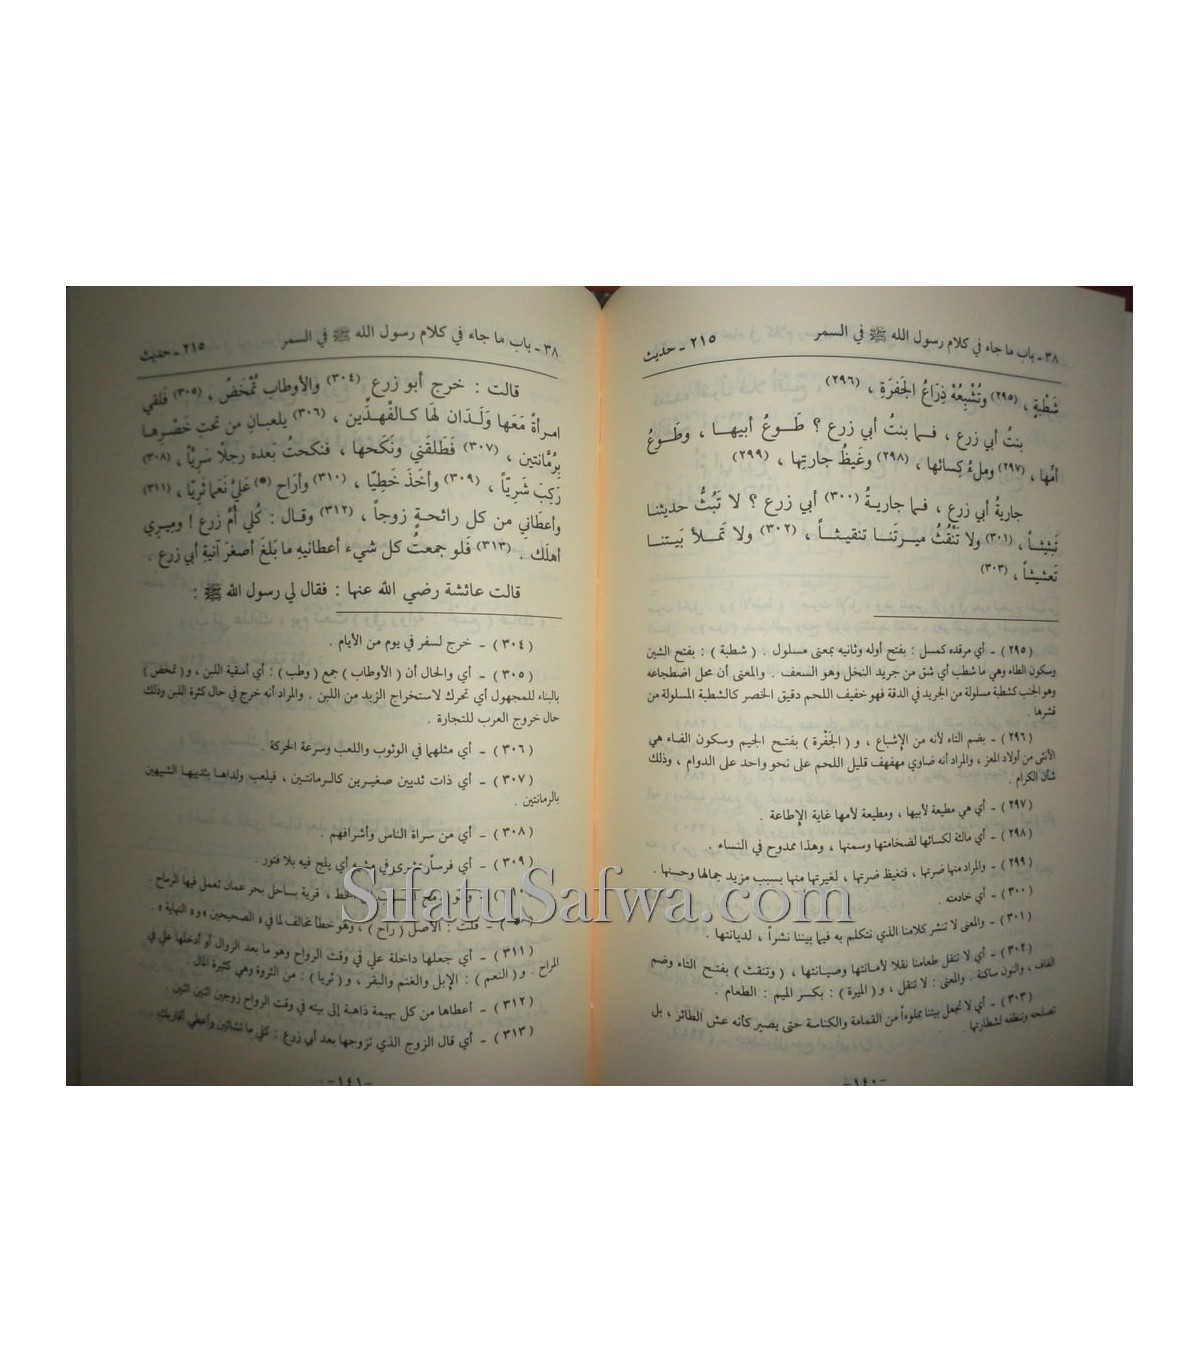 ٣٨ - باب ما جاء في كلام رسول الله ﷺ في السمر ٢١٥ - حديث
شَطْبةٍ ، (٢٩٥) وتُشْبِعُهُ ذِرَاعُ الجَفرَةِ ، (٢٩٦)
بنتُ أبي زرع ، فما بنتُ أبي زرع ؟ طَوعُ أبيها ، وطَوعُ
أمِّها ، (٢٩٧) وملءُ كِسائها ، (٢٩٨) وغَيظُ جارتِها ، (٢٩٩)
جاريةُ أبي زرع ، فما جاريةُ (٣٠٠) أبي زرع ؟ لا تَبُثُّ حديثنا
تَبْثيثاً ، (٣٠١) ولا تَنْقُثُ ميرَتَنا تنقيثاً ، (٣٠٢) ولا تَملأ بيتنا
تَعشيشاً ، (٣٠٣)
(٢٩٥) - أي مرقده كمسل : بفتح أوله وثانيه بمعنى مسلول . ( شطبة ) : بفتح الشين
وسكون الطاء وهي ما شطب أي شق من جريد النخل وهو السعف . والمعنى أن محل اضطجاعه
وهو الجنب كشطبة مسلولة من الجريد في الدقة فهو خفيف اللحم دقيق الخصر كالشطبة المسلولة من
قشرها .
(٢٩٦) - بضم التاء لأنه من الإشباع ، و ( الجَفْرة ) بفتح الجيم وسكون الفاء هي
الأنثى من أولاد المعز ، والمراد أنه ضاوي مهفهف قليل اللحم على نحو واحد على الدوام ، وذلك
شأن الكرام .
(٢٩٧) - أي هي مطيعة لأبيها ، ومطيعة لأمها غاية الإطاعة .
(٢٩٨) - أي مالئة لكسائها لضخامتها وسمنها ، وهذا ممدوح في النساء .
(٢٩٩) - والمراد منها ضرتها ، فتغيظ ضرتها ، لغيرتها منها بسبب مزيد جمالها وحسنها .
(٣٠٠) - أي خادمته .
(٣٠١) - والمعنى لا تنشر كلامنا الذي نتكلم به فيما بيننا نشراً ، لديانتها .
(٣٠٢) - أي لا تنقل طعامنا نقلا لأمانتها وصيانتها ، ( وتنقث ) بفتح التاء وضم
القاف ، والنون ساكنة . والمعنى : لا تنقل ، و ( الميرة ) : بكسر الميم : الطعام .
(٣٠٣) - أي لا تجعل بيتنا مملوءاً من القمامة والكناسة حتى يصير كأنه عش الطائر ، بل
تصلحه وتنظفه لشطارتها .
-١٤٠-
٣٨ - باب ما جاء في كلام رسول الله ﷺ في السمر ٢١٥ - حديث
قالت : خرج أبو زرع (٣٠٤) والأوطاب تُمْخَضُ ، (٣٠٥) فلقي
امرأةً مَعَها وَلَدَان لهَا كالفهدَين ، (٣٠٦) يلعبان من تحتِ خَصْرِها
برُمَّانتين ، (٣٠٧) فَطلقَني ونَكَحها ، فنكحتُ بعده رجلًا سَرِيًّا ، (٣٠٨)
رَكِبَ شَرِيّاً ، (٣٠٩) وأخَذَ خَطِيّا ، (٣١٠) وأرَاح (*) عَليَّ نَعَما ثَرِيّا ، (٣١١)
وأعطَاني من كل رائحةٍ زوجاً ، (٣١٢) وقال : كُلي أمَّ زرع ! ومِيري
أهلَك . (٣١٣) فَلو جمعتُ كل شيء أعطانيهِ ما بَلغَ أصغرَ آنيةِ أبي زرع .
قالت عائشة رضي الله عنها : فقال لي رسول الله ﷺ :
(٣٠٤) - خرج لسفر في يوم من الأيام .
(٣٠٥) - أي والحال أن ( الأوطاب ) جمع ( وطب ) : أي أسقية اللبن ، و ( تمخض )
بالبناء للمجهول أي تحرك لاستخراج الزبد من اللبن . والمراد أنه خرج في حال كثرة اللبن وذلك
حال خروج العرب للتجارة .
(٣٠٦) - أي مثلهما في الوثوب واللعب وسرعة الحركة .
(٣٠٧) - أي ذات ثديين صغيرين كالرمانتين ، فيلعب ولداها بثدييها الشبيهين
بالرمانتين .
(٣٠٨) - أي من سراة الناس وأشرافهم .
(٣٠٩) - أي فرساً يشرى في مشيه أي يلج فيه بلا فتور .
قرية بساحل بحر عمان تعمل فيها الرماح .
(*) - قلت : الأصل ( راح ) ، وهو خطأ مخالف لما في « الصحيحين » و « النهاية » .
(٣١١) - أي جعلها داخلة علي في وقت الرواح وهو ما بعد الزوال أو أدخلها علي في
المراح . و ( النعم ) : الإبل والغنم والبقر ، و ( ثريا ) : من الثروة وهي كثيرة المال .
(٣١٢) - أعطاها من كل بهيمة ذاهبة إلى بيته في وقت الرواح زوجين اثنين اثنين .
(٣١٣) - أي قال الزوج الذي تزوجها بعد أبي زرع : كلي ما تشائين وأعطي أقاربك
-١٤١-
SifatuSafwa.com